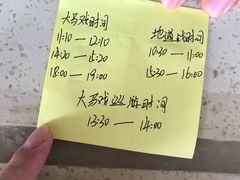 大马戏时间
11:10 — 12:10
14:20 — 15:20
18:00 — 19:00
地道战时间
10:30 — 11:00
15:30 — 16:00
大马戏巡游时间
13:30 — 14:00